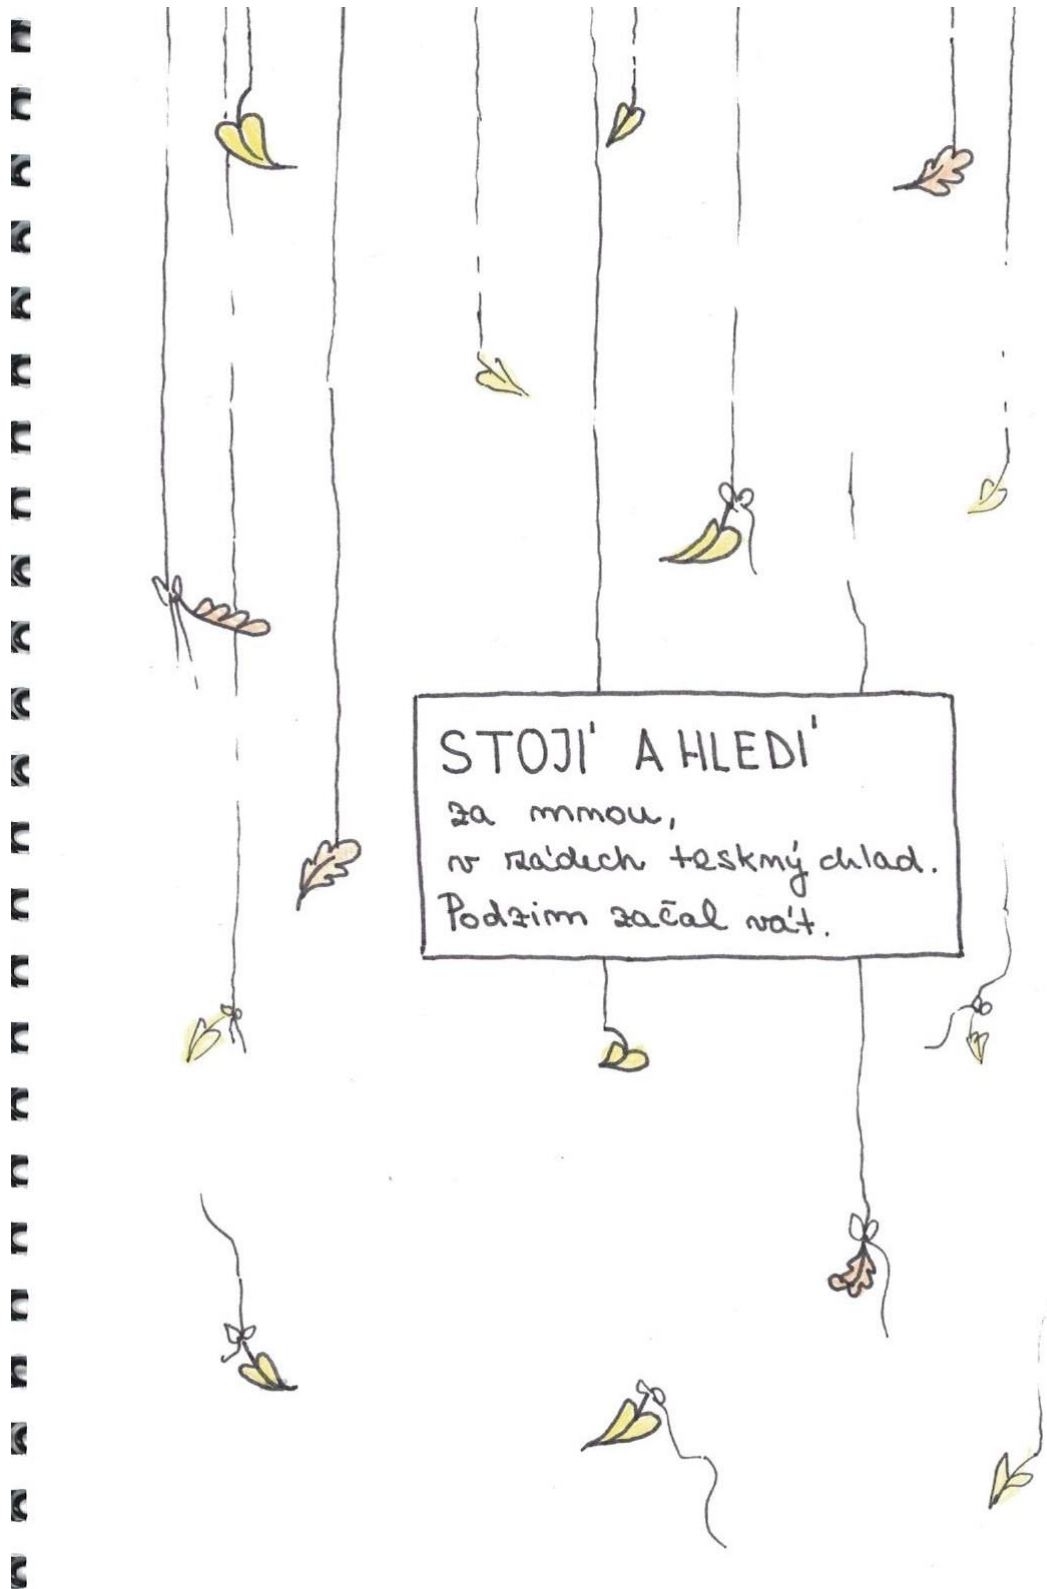 STOJÍ A HLEDÍ
za mnou,
v zádech teskný chlad.
Podzim začal vát.